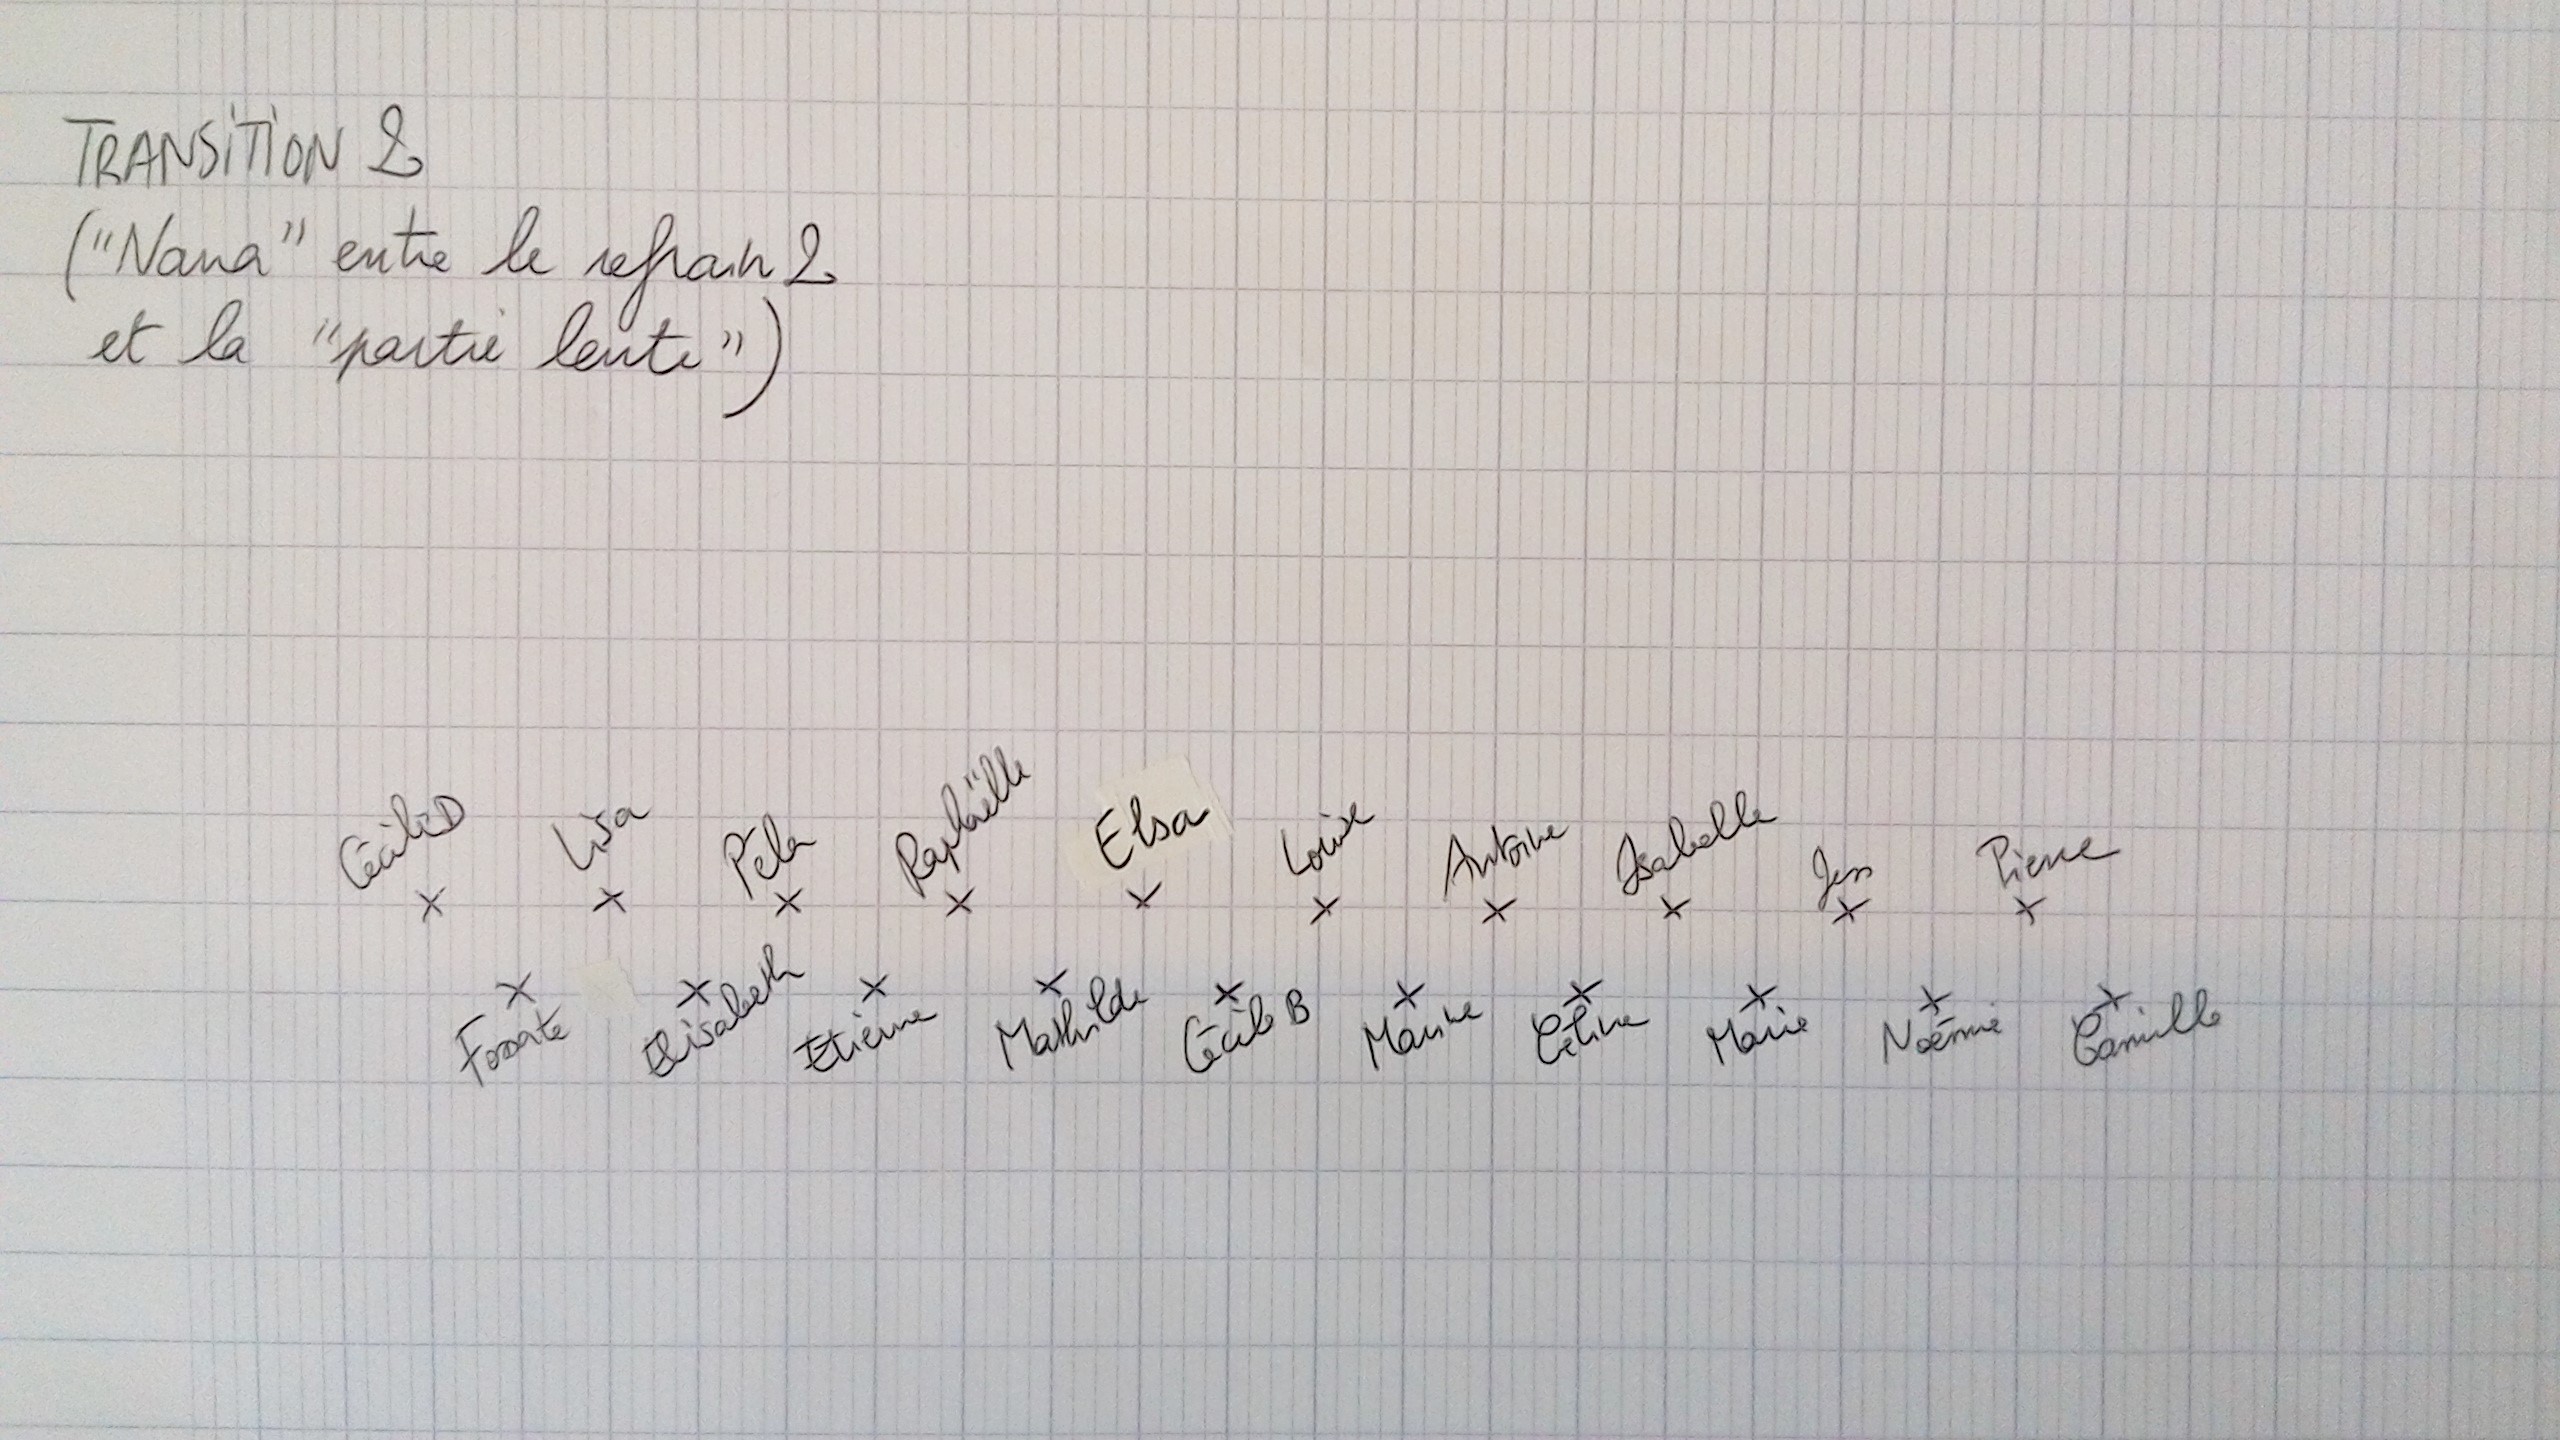 TRANSITION 2
("Nana" entre le refrain 2
et la "partie lente")
Cécile D Lisa Péla Raphaëlle Elsa Louise Antoine Isabelle Jess Pierre
x x x x x x x x x x
x x x x x x x x x x
Elisabeth Etienne Mathilde Cécile B Marine Céline Marie Noémie Camille